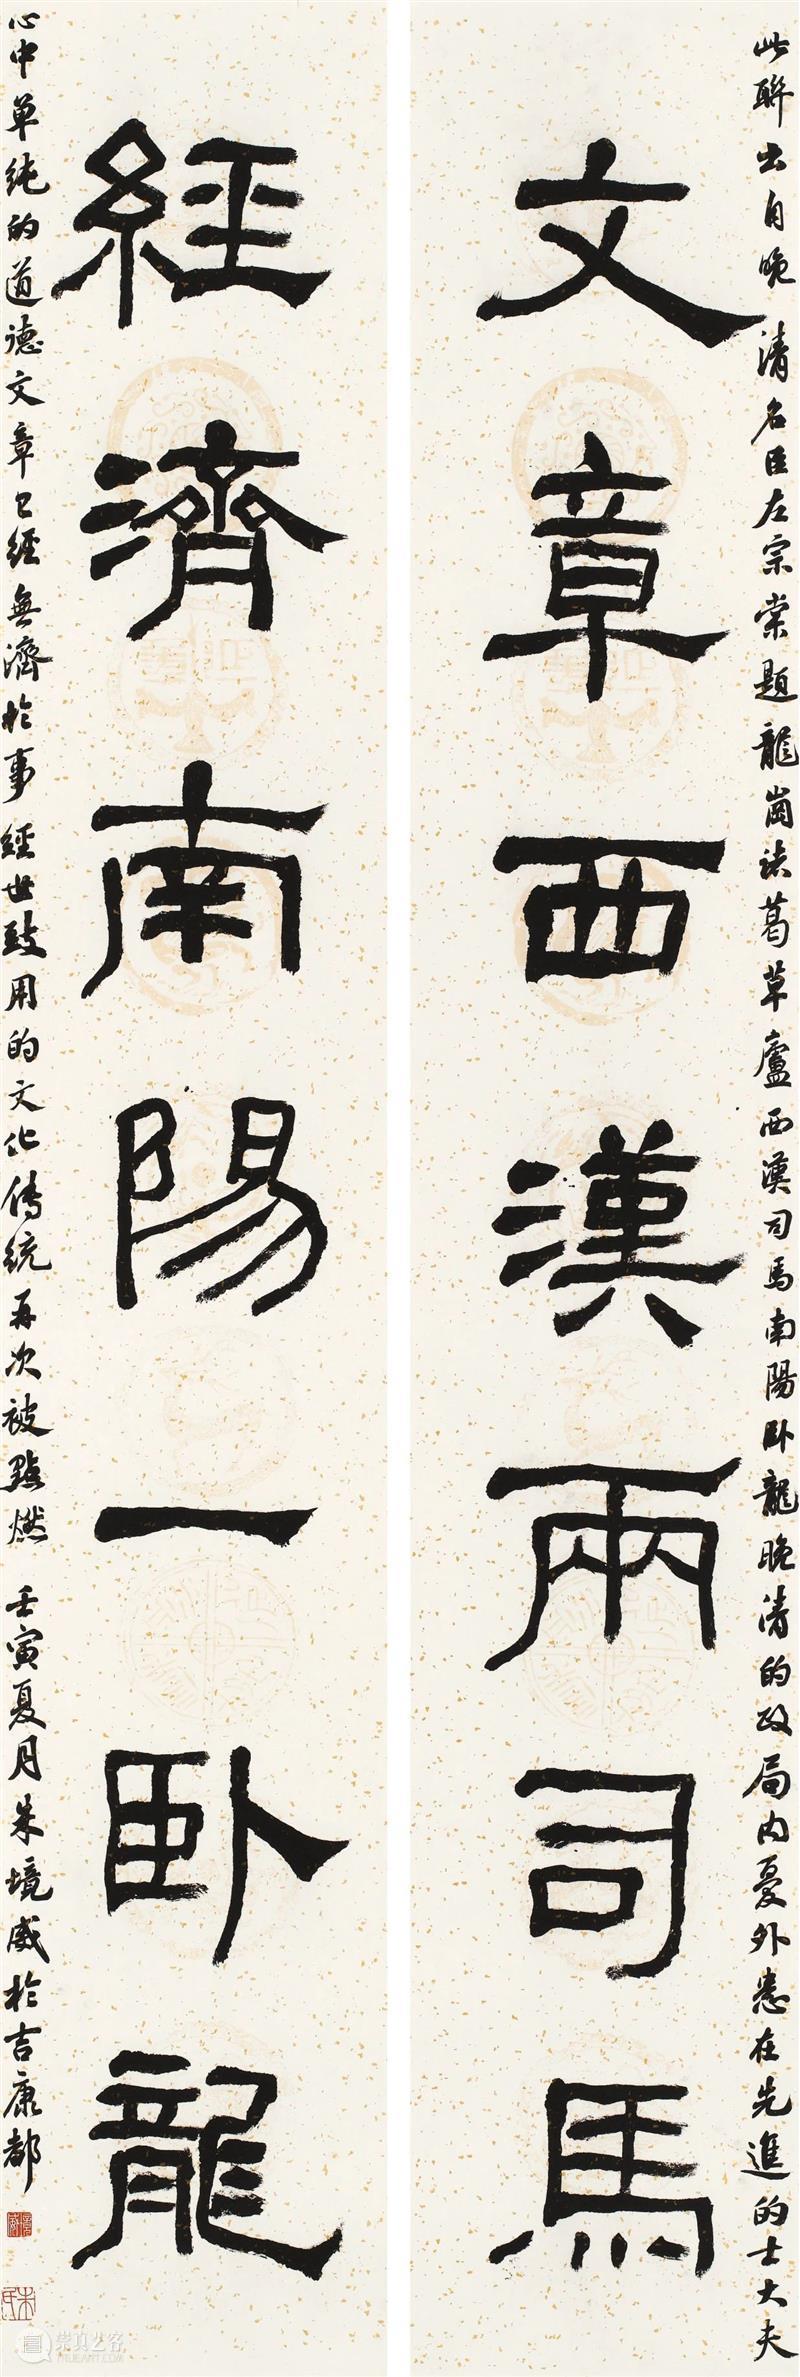 此聯出自晚清名臣左宗棠題龍崗諸葛草廬西漢司馬南陽卧龍晚清的政局内憂外患在先進的士大夫
文章西漢兩司馬
經濟南陽一卧龍
心中單純的道德文章已經無濟於事經世致用的文化傳統再次被點燃 壬寅夏月朱境威於吉康都
朱氏
崇真艺客